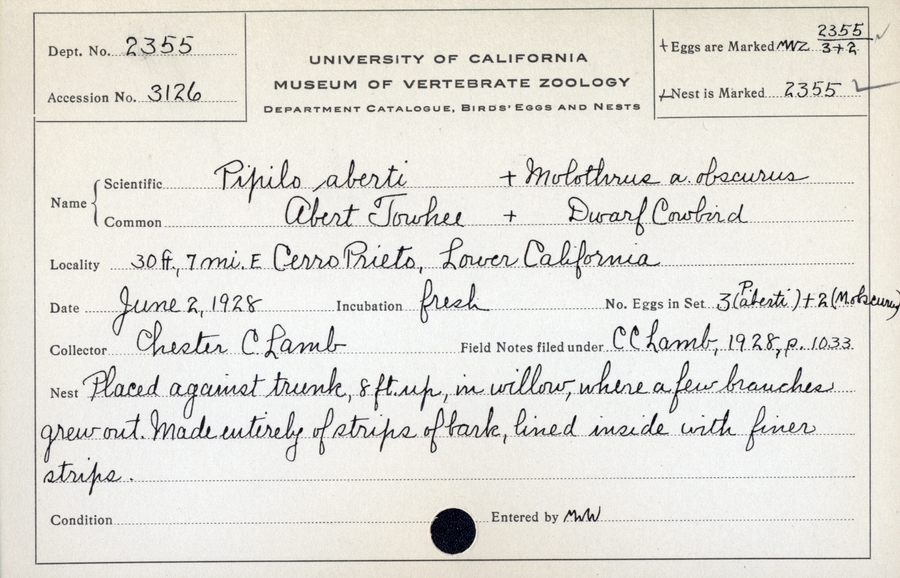 Dept. No. 2355
Accession No. 3126
UNIVERSITY OF CALIFORNIA
MUSEUM OF VERTEBRATE ZOOLOGY
DEPARTMENT CATALOGUE, BIRDS' EGGS AND NESTS
+ Eggs are Marked MVZ 2355 / 3+2
Nest is Marked 2355
Name
Scientific Pipilo aberti + Molothrus a. obscurus
Common Abert Towhee + Dwarf Cowbird
Locality 30 ft., 7 mi. E Cerro Prieto, Lower California
Date June 2, 1928 Incubation fresh No. Eggs in Set 3 (P. aberti) + 2 (M. obscurus)
Collector Chester C Lamb Field Notes filed under CC Lamb, 1928, p. 1033
Nest Placed against trunk, 8 ft. up, in willow, where a few branches
grew out. Made entirely of strips of bark, lined inside with finer
strips.
Condition Entered by MWW